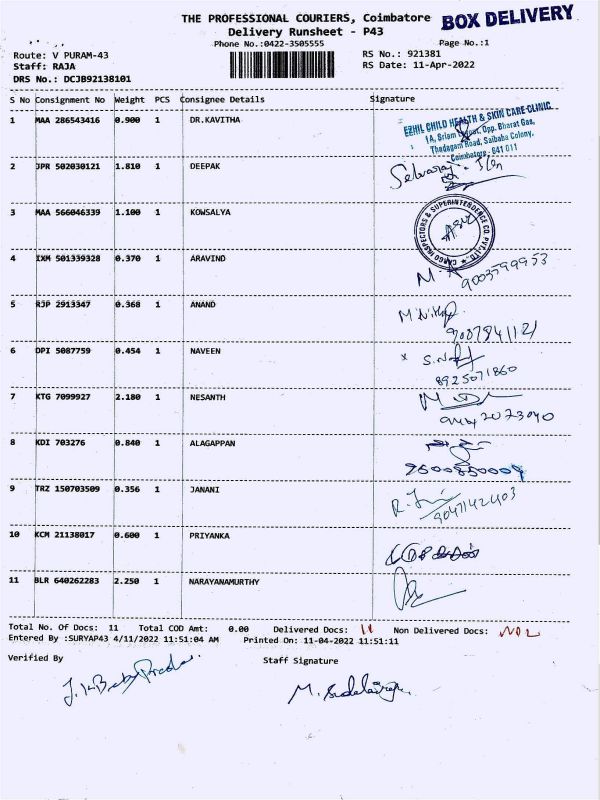 THE PROFESSIONAL COURIERS, Coimbatore BOX DELIVERY
Delivery Runsheet - P43
Phone No.:0422-3505555 Page No.:1
Route: V PURAM-43 RS No.: 921381
Staff: RAJA RS Date: 11-Apr-2022
DRS No.: DCJB92138101
S No Consignment No Weight PCS Consignee Details Signature
1 MAA 286543416 0.900 1 DR.KAVITHA
EZHIL CHILD HEALTH & SKIN CARE CLINIC
1A, Opp. Bharat Gas,
Thadagam Road, Saibaba Colony,
Coimbatore - 641 011
2 JPR 502030121 1.810 1 DEEPAK
Selvaraj
3 MAA 566046339 1.100 1 KOWSALYA
CARGO INSPECTORS & SUPERINTENDENCE CO. PVT. LTD.
4 IXM 501339328 0.370 1 ARAVIND
9003599953
5 RJP 2913347 0.368 1 ANAND
6 OPI 5087759 0.454 1 NAVEEN
8925071860
7 KTG 7099927 2.180 1 NESANTH
8 KDI 703276 0.840 1 ALAGAPPAN
9 TRZ 150703509 0.356 1 JANANI
9047142403
10 KCM 21138017 0.600 1 PRIYANKA
11 BLR 640262283 2.250 1 NARAYANAMURTHY
Total No. Of Docs: 11 Total COD Amt: 0.00 Delivered Docs: 11 Non Delivered Docs: NIL
Entered By :SURYAP43 4/11/2022 11:51:04 AM Printed On: 11-04-2022 11:51:11
Verified By Staff Signature